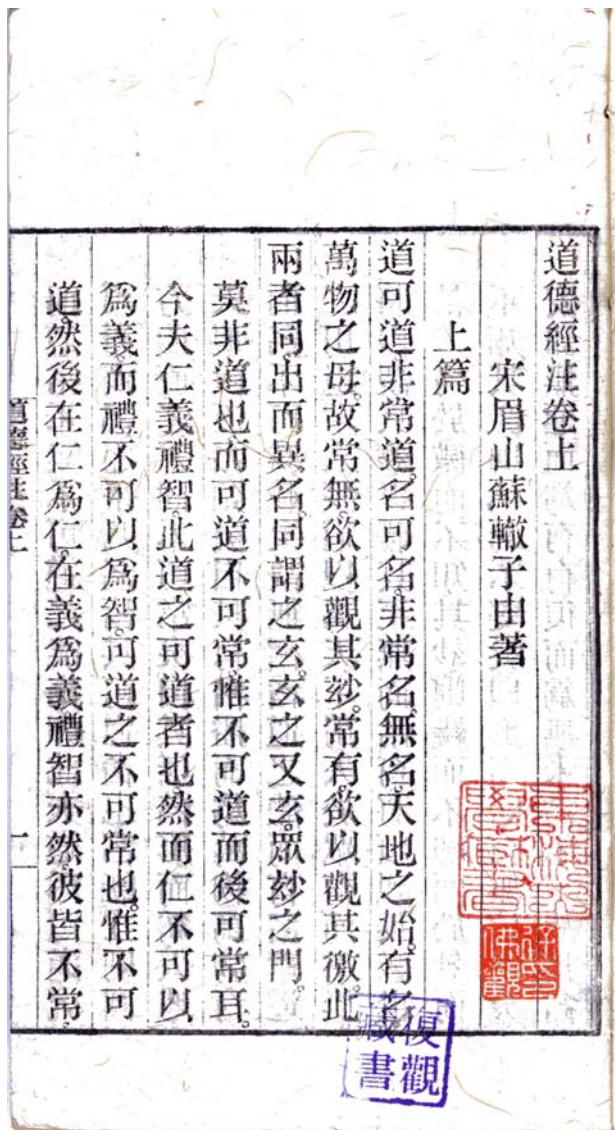 道德經注卷上
宋眉山蘇轍子由著
上篇
道可道非常道。名可名。非常名。無名。天地之始。有名
萬物之母。故常無欲以觀其玅。常有。欲以觀其徼。此
兩者同出而異名。同謂之玄。玄之又玄。眾玅之門。
莫非道也而可道不可常。惟不可道而後可常耳。
今夫仁義禮智。此道之可道者也。然而仁不可以
爲義。而禮不可以爲智。可道之不可常也。惟不可
道然後在仁爲仁。在義爲義禮智亦然彼皆不常。
道德經注卷上
一
徐印
佛觀
復觀
藏書